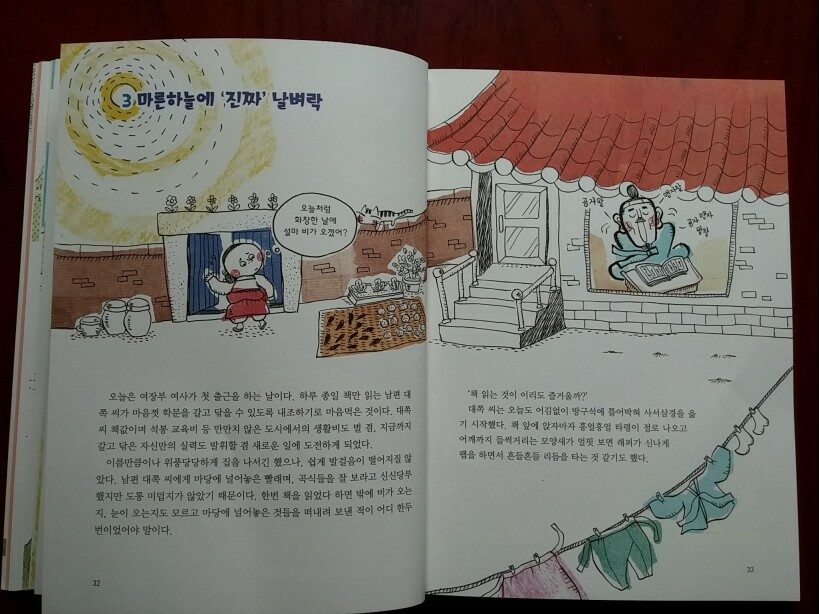 3 마른하늘에 '진짜' 날벼락
오늘처럼
화창한 날에
설마 비가 오겠어?
오늘은 여장부 여사가 첫 출근을 하는 날이다. 하루 종일 책만 읽는 남편 대
쪽 씨가 마음껏 학문을 갈고 닦을 수 있도록 내조하기로 마음먹은 것이다. 대쪽
씨 책값이며 석봉 교육비 등 만만치 않은 도시에서의 생활비도 벌 겸, 지금까지
갈고 닦은 자신만의 실력도 발휘할 겸 새로운 일에 도전하게 되었다.
이름만큼이나 위풍당당하게 집을 나서긴 했으나, 쉽게 발걸음이 떨어지질 않
았다. 남편 대쪽 씨에게 마당에 널어놓은 빨래며, 곡식들을 잘 보라고 신신당부
했지만 도통 미덥지가 않았기 때문이다. 한번 책을 읽었다 하면 밖에 비가 오는
지, 눈이 오는지도 모르고 마당에 널어놓은 것들을 떠내려 보낸 적이 어디 한두
번이었어야 말이다.
32
공자왈
맹자왈
공자 맹자
왈왈
'책 읽는 것이 이리도 즐거울까?'
대쪽 씨는 오늘도 어김없이 방구석에 틀어박혀 사서삼경을 읊
기 시작했다. 책 앞에 앉자마자 흥얼흥얼 타령이 절로 나오고
어깨까지 들썩거리는 모양새가 얼핏 보면 래퍼가 신나게
랩을 하면서 흔들흔들 리듬을 타는 것 같기도 했다.
33